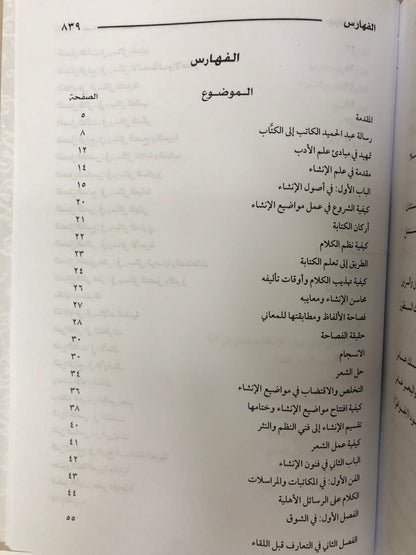 الفهارس ٨٣٩
الفهارس
الموضوع الصفحة
المقدمة ٥
رسالة عبد الحميد الكاتب إلى الكتَّاب ٨
تمهيد في مبادئ علم الأدب ١٢
مقدمة في علم الإنشاء ١٤
الباب الأول: في أصول الإنشاء ١٥
كيفية الشروع في عمل مواضيع الإنشاء ٢٠
أركان الكتابة ٢١
كيفية نظم الكلام ٢٢
الطريق إلى تعلم الكتابة ٢٣
كيفية تهذيب الكلام وأوقات تأليفه ٢٤
محاسن الإنشاء ومعايبه ٢٦
فصاحة الألفاظ ومطابقتها للمعاني ٢٧
حقيقة الفصاحة ٢٨
الانسجام ٣٠
حل الشعر ٣٠
التخلص والاقتضاب في مواضيع الإنشاء ٣٤
كيفية افتتاح مواضيع الإنشاء وختامها ٣٦
تقسيم الإنشاء إلى فني النظم والنثر ٣٨
كيفية عمل الشعر ٤٠
الباب الثاني في فنون الإنشاء ٤١
الفن الأول: في المكاتبات والمراسلات ٤٢
الكلام على الرسائل الأهلية ٤٣
الفصل الأول: في الشوق ٤٤
الفصل الثاني في التعارف قبل اللقاء ٥٥